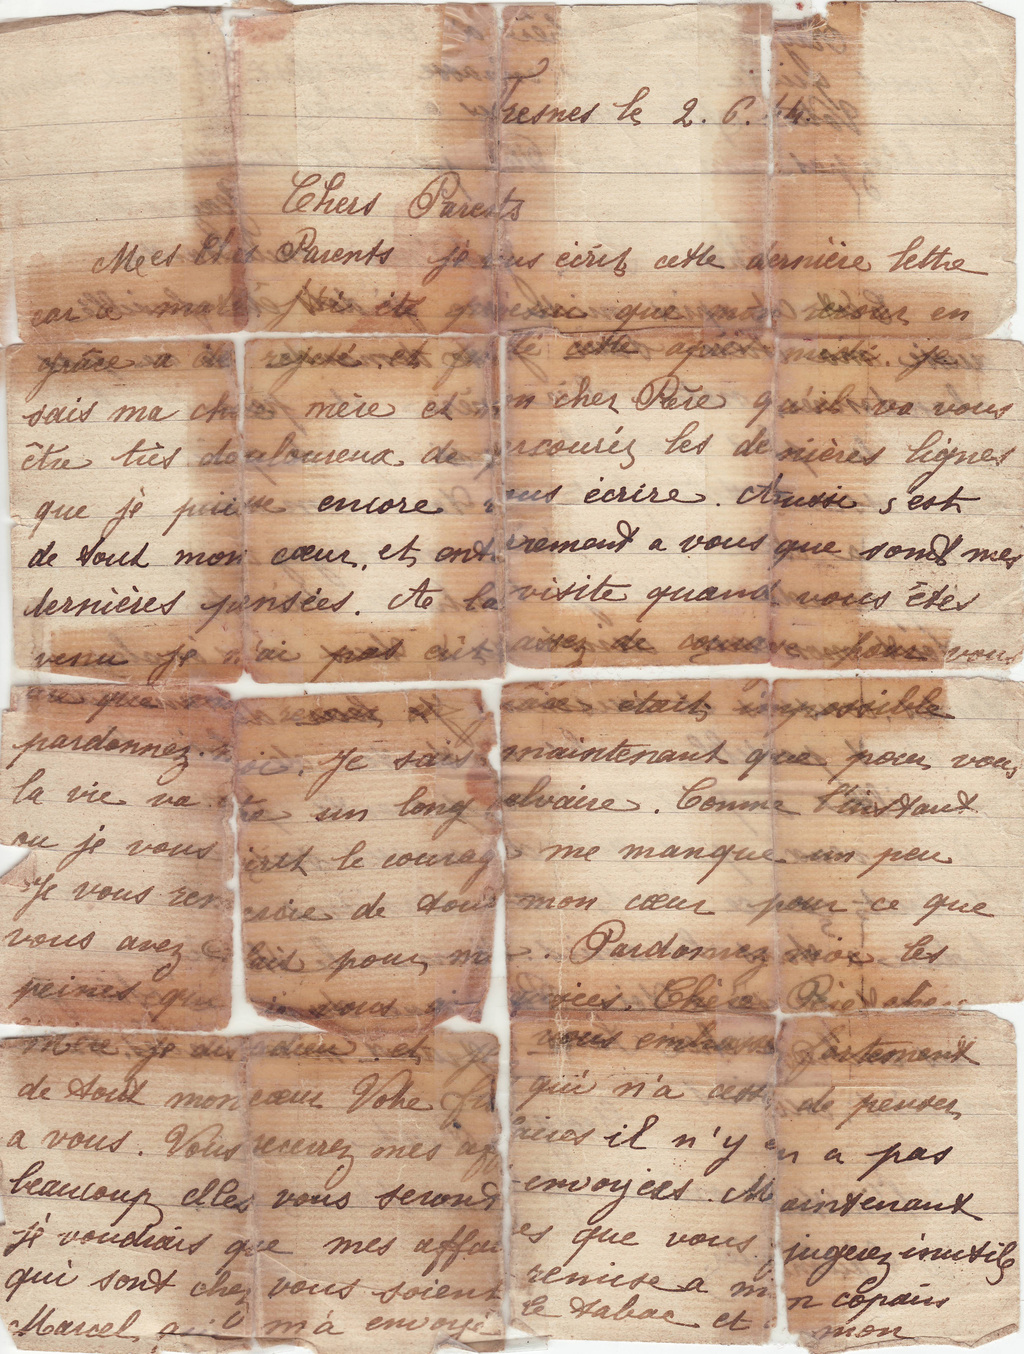 Fresnes le 2.6.44.
Chers Parents
Mees Chers Parents je vous écrit cette dernière lettre
car ce matin j'ai été que mon recour en
grâce a été rejeté et cette après midi. je
sais ma chère mère et mon cher Père qu'il va vous
être très douloureux de parcouréz les dernières lignes
que je puisse encore vous écrire. Aussi s'est
de tout mon cœur, et entierement a vous que sondt mes
dernières pensées. A la visite quand vous êtes
venu je n'ai pas eut assez de courage pour vous
dire que recours en grâce était impossible
pardonnez moi. Je sais maintenant que pour vous
la vie va être un long calvaire. Comme l'instant
ou je vous écrit le courage me manque un peu
Je vous remercie de tout mon cœur pour ce que
vous avez fait pour moi. Pardonnez moi les
peines que je vous ai Chère
mère je dis adieu et je vous embrasse fortement
de tout mon cœur Votre fils qui n'a cessé de penser
a vous. Vous recevrez mes affaires il n'y en a pas
beaucoup elles vous seront envoyées. Maintenant
je voudrais que mes affaires que vous jugerez inutile
qui sont chez vous soient remise a mon copain
Marcel m'a envoyé le tabac et mon